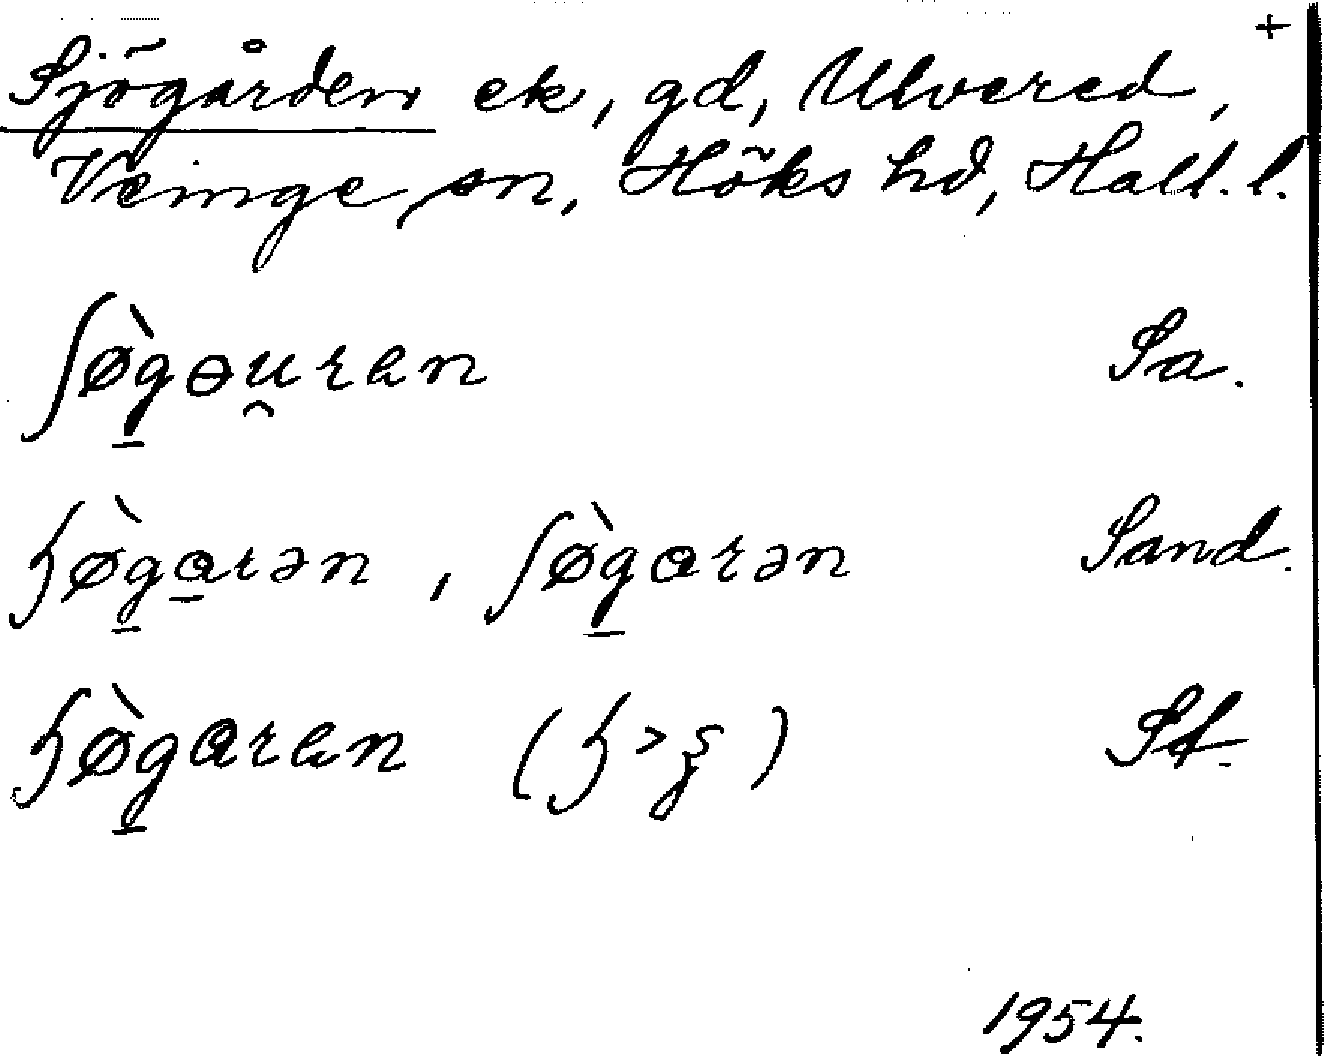 +
Sjögården ek, gd, Ulvered,
Veinge sn, Höks hd, Hall. l.
ʃø̀gɵu̯ran Sa.
ɧø̀garən, ʃø̀garən Sand.
ɧø̀garan (ɧ > ʂ) St.
1954.